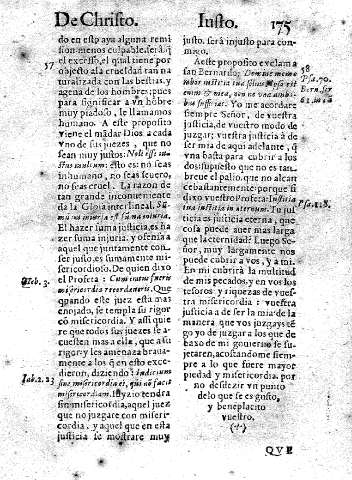 De Christo. Iusto. 175
do en esto aya alguna remi
sion menos culpable. será, q̃
57
el excesso, el qual tiene por
objecto ala crueldad tan na
turalizada con las bestias, y
agena de los hombres; pues
para significar a vn hõbre
muy piadoso, le llamamos
humano. A este proposito
viene el mãdar Dios a cada
vno de sus juezes, que no
sean muy justos: Noli esse ius
tus multum: esto es: no seas
inhumano, no seas seuero,
no seas cruel. La razon de
tan grande inconueniente
da la Glosa interlineal: Su
ma iustitia est suma iniuria.
El hazer suma justicia, es ha
zer suma injuria. y ofensa a
aquel que juntamente con
ser justo, es sumamente mi
sericordioso. De quien dixo
Hab. 3.
el Profeta: Cum iratus fueris
misericordiæ recordaueris. Que
quando este juez està mas
enojado, se templa su rigor
cõ misericordia. Y assi quie
re que todos sus juezes se a-
cuesten mas a ella, que a su
rigor: y les amenaza braua-
mente a los q̃ en esto exce
Iab. 2. 13
dieron, diziendo: Indicium
sine misericordia ei, qui nõ fecit
misericordiam. Iuyzio tendra
sin misericordia, aquel juez
que no juzgare con miseri-
cordia. y aquel que en esta
justicia se mostrare muy
justo. será injusto para con-
migo.
A este proposito exclama
58
san Bernardo: Domine memo
Psa. 70.
rabor iustitiæ tuæ solius. Ipsa est
Bern. ser
enim & mea, an no vna ambo-
61. in ca
bus sufficiat. Yo me acordare
siempre Señor, de vuestra
justicia, de vuestro modo de
juzgar; vuestra justicia à de
ser mia de aqui adelante, q̃
vna basta para cubrir a los
dos: supuesto que no es tan
breue el palio, que no alcan
ce bastantemente: porque si
dixo vuestro Profeta: Iustitia
Psa. 118.
tua iustitia in æternum. Tu jus
ticia es justicia eterna, que
cosa puede auer mas larga
que la eternidad? Luego Se-
ñor, muy largamente nos
puede cubrir a vos, y a mi.
En mi cubrirà la multitud
de mis pecados. y en vos los
tesoros, y riquezas de vues-
tra misericordia: vuestra
justicia a de ser la mia de la
manera que vos juzgays tẽ-
go yo de juzgar a los que de
baxo de mi gouierno se su-
jetaren, acostandome siempre
a lo que fuere mayor
piedad y misericordia. por
no desdezir vn punto
delo que es es gusto,
y beneplacito
vuestro.
(†)
QVE